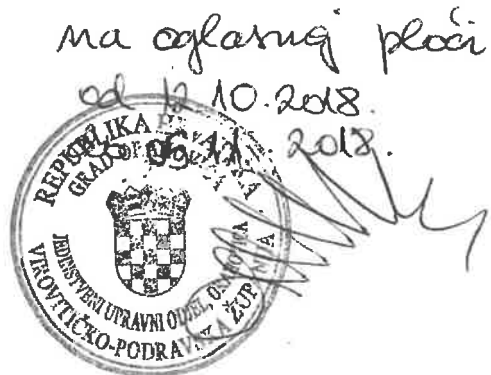 na oglasnoj ploči
od 12.10.2018.
2018.
REPUBLIKA
GRAD
JEDINSTVENI UPRAVNI ODJEL,
VIROVITIČKO-PODRAVSKA ŽUP